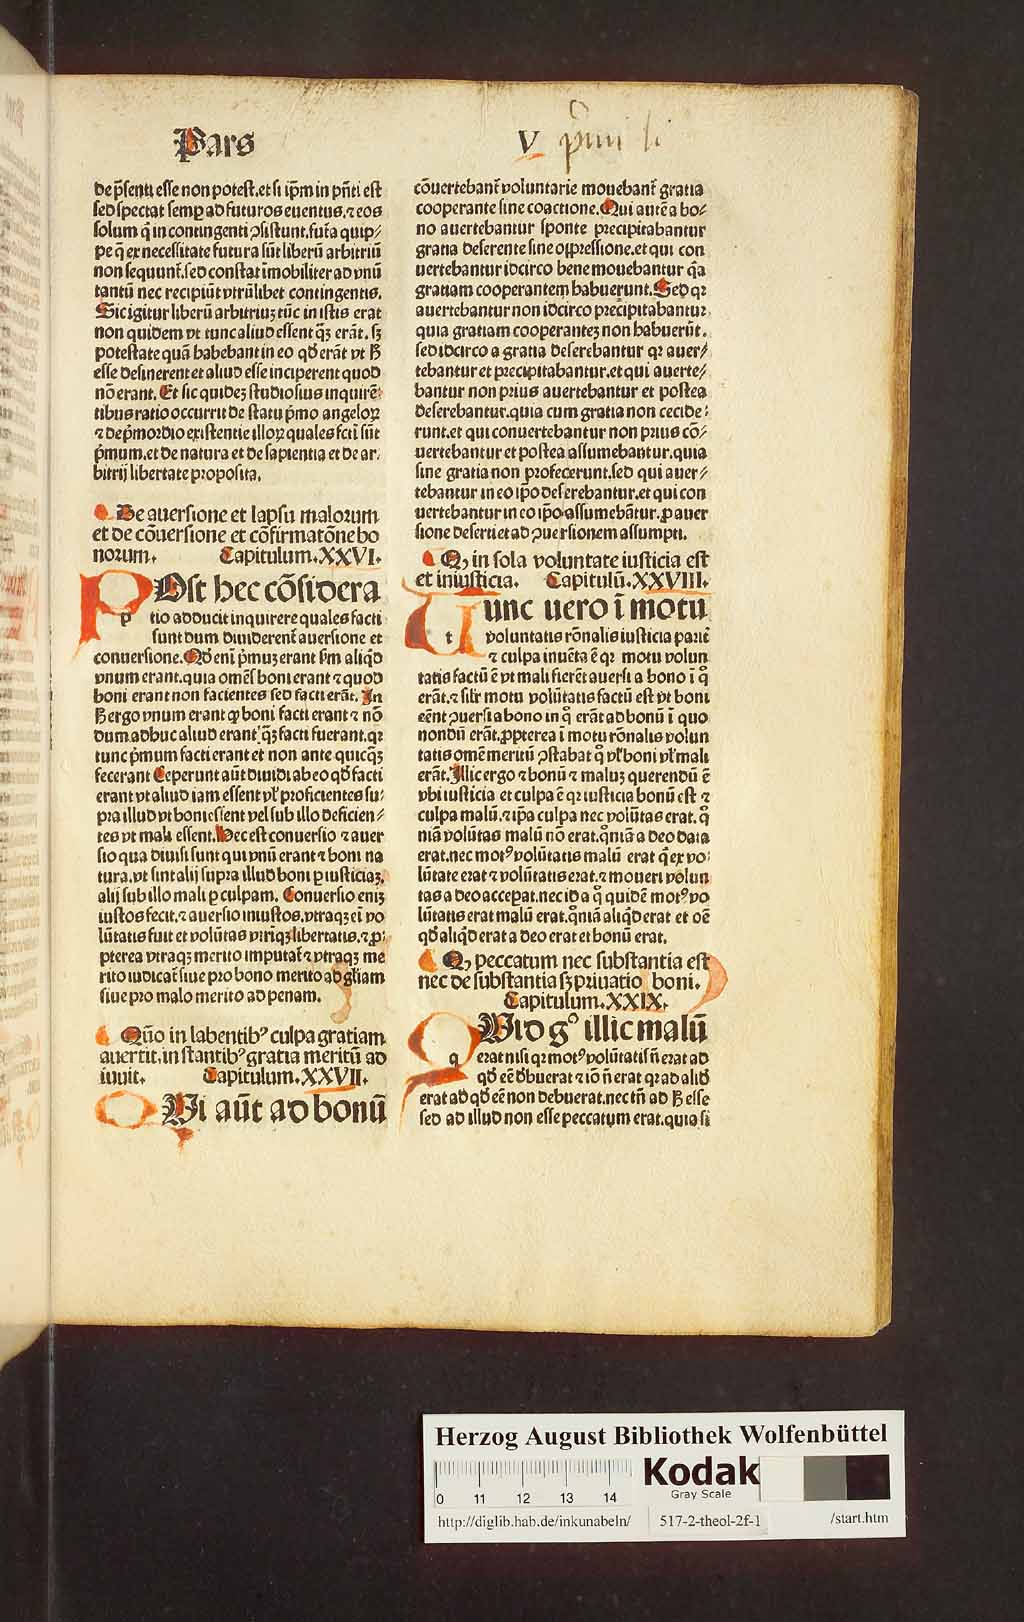 Pars V p̄mi li
de p̄senti esse non potest.et si ip̄m in pn̄ti est
sed spectat semꝑ ad futuros euentus.⁊ eos
solum q̇ in contingenti ꝯsistunt.fut̄a quip⸗
pe q̄ ex necessitate futura sūt liberū arbitriū
non sequunt̄.sed constat īmobiliter ad vnū
tantū nec recipiūt vtrūlibet contingentis.
Sic igitur liberū arbitriuꝫ tūc in istis erat
non quidem vt tunc aliud essent q̄ꝫ erāt. sꝫ
potestate quā habebant in eo qd̄ erāt vt h̄
esse desinerent et aliud esse inciperent quod
nō erant. Et sic quideꝫ studiosius inquirē⸗
tibus ratio occurrit de statu p̄mo angeloꝝ
⁊ de p̄mordio existentie illoꝝ quales fcti sūt
p̄mum.et de natura et de sapientia et de ar⸗
bitrij libertate proposita.
De auersione et lapsu malorum
et de cōuersione et cōfirmatōne bo
norum. Capitulum.XXVI.
POst hec cōsidera
p tio adducit inquirere quales facti
sunt dum diuiderent̄ auersione et
conuersione.Qd̄ eni̅ p̄muꝫ erant h̄m aliqd̄
vnum erant.quia omēs boni erant ⁊ quod
boni erant non facientes sed facti erāt. In
h̄ ergo vnum erant ꝙ boni facti erant ⁊ nō
dum adhuc aliud erant q̄ꝫ facti fuerant.qꝛ
tunc p̄mum facti erant et non ante quicq̄ꝫ
fecerant Ceperunt aūt diuidi ab eo qd̄ facti
erant vt aliud iam essent vl̓ proficientes su⸗
pra illud vt boni essent vel sub illo deficien⸗
tes vt mali essent.Hec est conuersio ⁊ auer
sio qua diuisi sunt qui vnū erant ⁊ boni na
tura.vt sint alij supra illud boni ꝑ iusticiaꝫ.
alij sub illo mali ꝑ culpam. Conuersio eniꝫ
iustos fecit.⁊ auersio iniustos.vtraqꝫ ei̅ vo
lūtatis fuit et volūtas vtriꝗꝫ libertatis.⁊ ꝓ⸗
pterea vtraqꝫ merito imputat̄ ⁊ vtraqꝫ me
rito iudicat̄ siue pro bono merito ad gl̄iam
siue pro malo merito ad penam.
Quō in labentibꝰ culpa gratiam
auertit.in stantibꝰ gratia meritū ad
iuuit. Capitulum.XXVII.
QVi aūt ad bonū
cōuertebant̄ voluntarie mouebant̄ gratia
cooperante sine coactione.Qui autē a bo⸗
no auertebantur sponte precipitabantur
gratia deserente sine oppressione.et qui con
uertebantur idcirco bene mouebantur q̇a
gratiam cooperantem habuerunt.Sed qꝛ
auertebantur non idcirco precipitabantur
quia gratiam cooperanteꝫ non habuerūt.
sed idcirco a gratia deserebantur qꝛ auer⸗
tebantur et precipitabantur.et qui auerte⸗
bantur non prius auertebantur et postea
deserebantur.quia cum gratia non cecide⸗
runt.et qui conuertebantur non prius cō⸗
uertebantur et postea assumebantur.quia
sine gratia non profecerunt.sed qui auer⸗
tebantur in eo ip̄o deserebantur.et qui con
uertebantur in eo ip̄o assumebātur.ꝓ auer
sione deserti et ad ꝯuersionem assumpti.
Qꝫ in sola voluntate iusticia est
et iniusticia. Capitulū.XXVIII.
TUnc uero ī motu
t voluntatis rōnalis iusticia pariē
⁊ culpa inuēta ē qꝛ motu volun
tatis factū ē vt mali fierēt auersi a bono ī q̊
erāt.⁊ sil̓r motu volūtatis factū est vt boni
eēnt ꝯuersi a bono in q̊ erāt ad bonū ī quo
nondū erāt.ꝓpterea ī motu rōnalis volun
tatis omē meritū ꝯstabat q̊ vl̓ boni vl̓ mali
erāt.Illic ergo ⁊ bonū ⁊ maluꝫ querendū ē
vbi iusticia et culpa ē qꝛ iusticia bonū est ⁊
culpa malū.⁊ ip̄a culpa nec volūtas erat.q̊
niā volūtas malū nō erat.q̊niā a deo data
erat.nec motꝰ volūtatis malū erat q̄ ex vo⸗
lūtate erat ⁊ volūtatis erat.⁊ moueri volun
tas a deo acceꝑat.nec id a q̊ quidē motꝰ vo
lūtatis erat malū erat.q̊niā aliqd̄ erat et oē
qd̄ aliqd̄ erat a deo erat et bonū erat.
Qꝫ peccatum nec substantia est
nec de substantia sꝫ priuatio boni.
Capitulum.XXIX.
QVid gͦ illic malū
q erat nisi qꝛ motꝰ volūtatis n̄ erat ad
qd̄ eē d̄buerat ⁊ iō n̄ erat qꝛ ad alid̄
erat ad qd̄ eē non debuerat.nec tn̄ ad h̄ esse
sed ad illud non esse peccatum erat.quia si
Herzog August Bibliothek Wolfenbüttel
0 11 12 13 14
Kodak
Gray Scale
http://diglib.hab.de/inkunabeln/ 517-2-theol-2f-1 /start.htm